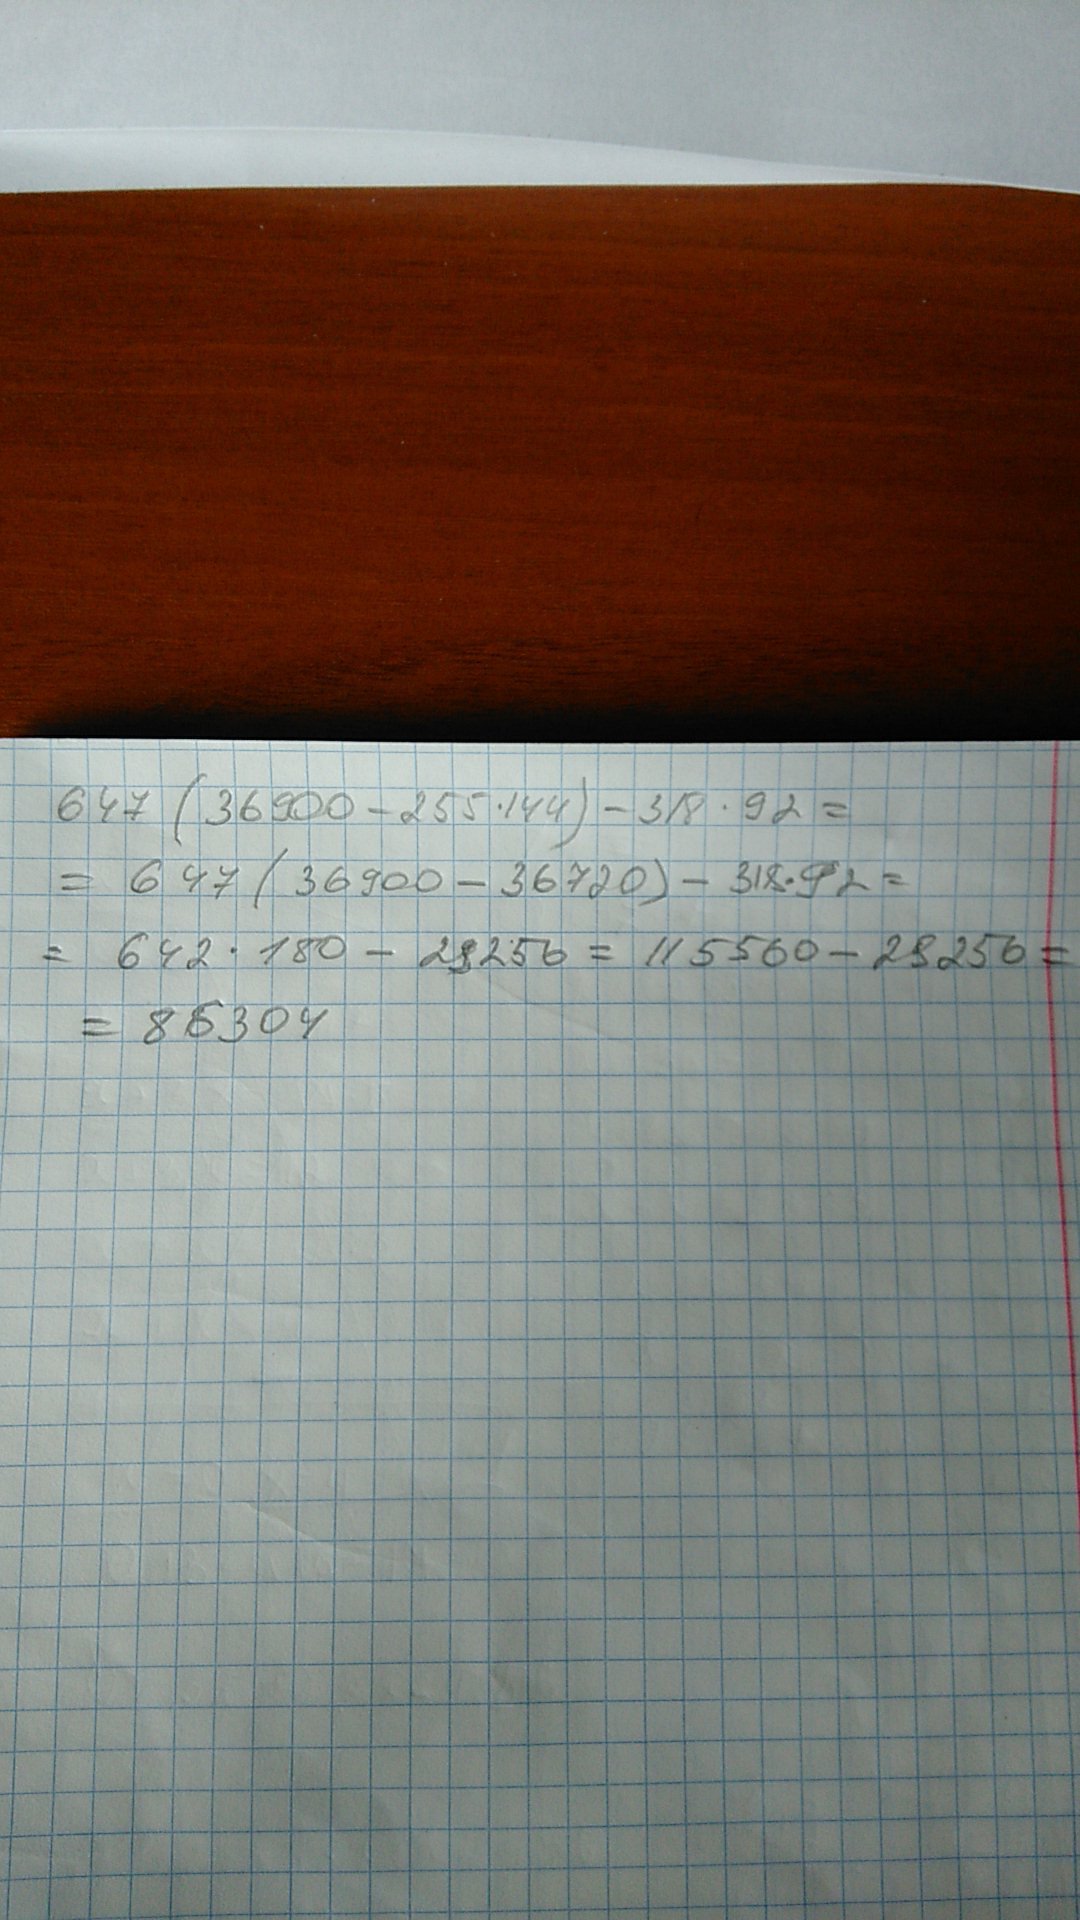 647 (36900 - 255·144) - 318·92 =
= 647 (36900 - 36720) - 318·92 =
= 642·180 - 29256 = 115560 - 29256 =
= 86304